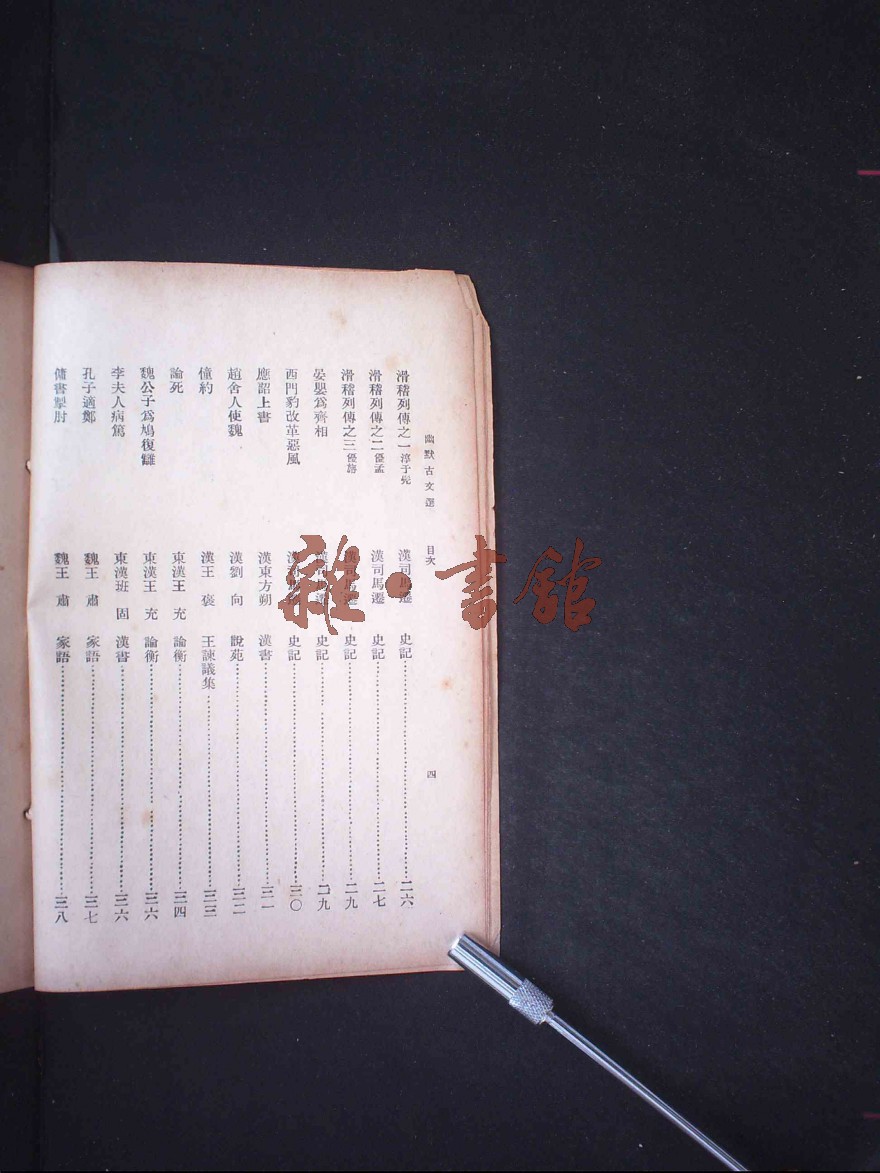 幽默古文選 目次 四
滑稽列傳之一 淳于髠 漢司馬遷 史記 二六
滑稽列傳之二 優孟 漢司馬遷 史記 二七
滑稽列傳之三 優旃 漢司馬遷 史記 二九
晏嬰爲齊相 史記 二九
西門豹改革惡風 史記 三〇
應詔上書 漢東方朔 漢書 三一
趙舍人使魏 漢劉向 說苑 三二
僮約 漢王褒 王諫議集 三三
論死 東漢王充 論衡 三四
魏公子爲鳩復讎 東漢王充 論衡 三六
李夫人病篤 東漢班固 漢書 三六
孔子適鄭 魏王肅 家語 三七
傭書掣肘 魏王肅 家語 三八
雜·書館